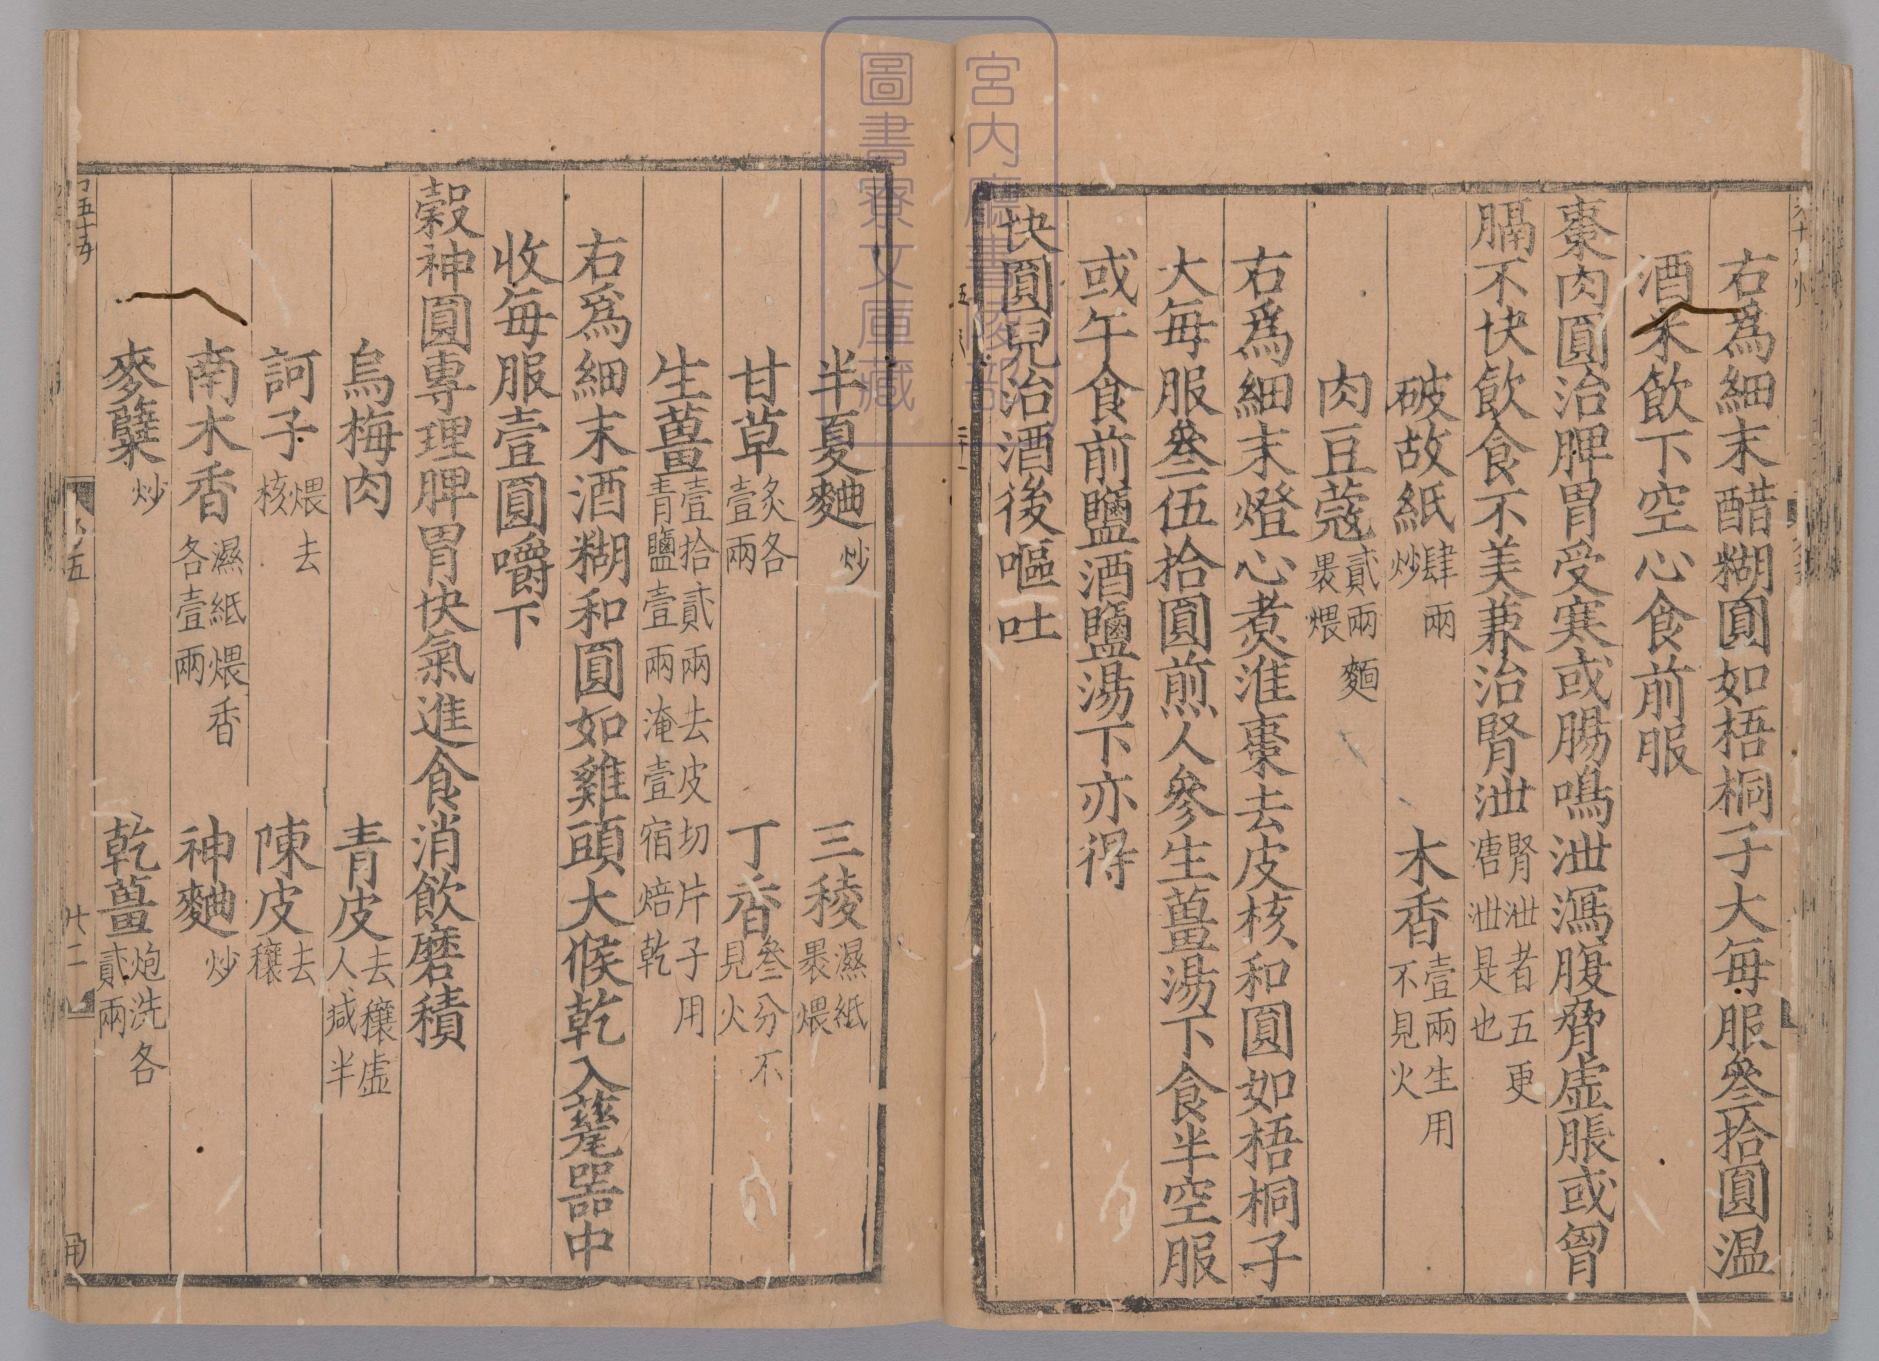 右爲細末醋糊圓如梧桐子大每服叄拾圓温
酒米飲下空心食前服
棗肉圓治脾胃受寒或腸鳴泄瀉腹脅虛脹或胷
膈不快飲食不美兼治腎泄腎泄者五更溏泄是也
破故紙肆兩炒 木香壹兩生用不見火
肉豆蔻貳兩麵裹煨
右爲細末燈心煮淮棗去皮核和圓如梧桐子
大每服叄伍拾圓煎人參生薑湯下食半空服
或午食前鹽酒鹽湯下亦得
快圓兒治酒後嘔吐
半夏麯炒 三稜濕紙裹煨
甘草炙各壹兩 丁香叄分不見火
生薑壹拾貳兩去皮切片子用青鹽壹兩淹壹宿焙乾
右爲細末酒糊和圓如雞頭大候乾入甆器中
收每服壹圓嚼下
穀神圓專理脾胃快氣進食消飲磨積
烏梅肉 青皮去穰虛人減半
訶子煨去核 陳皮去穰
南木香濕紙煨香各壹兩 神麯炒
麥糵炒 乾薑炮洗各貳兩
五
廿二
宮内廳書陵部
圖書寮文庫藏